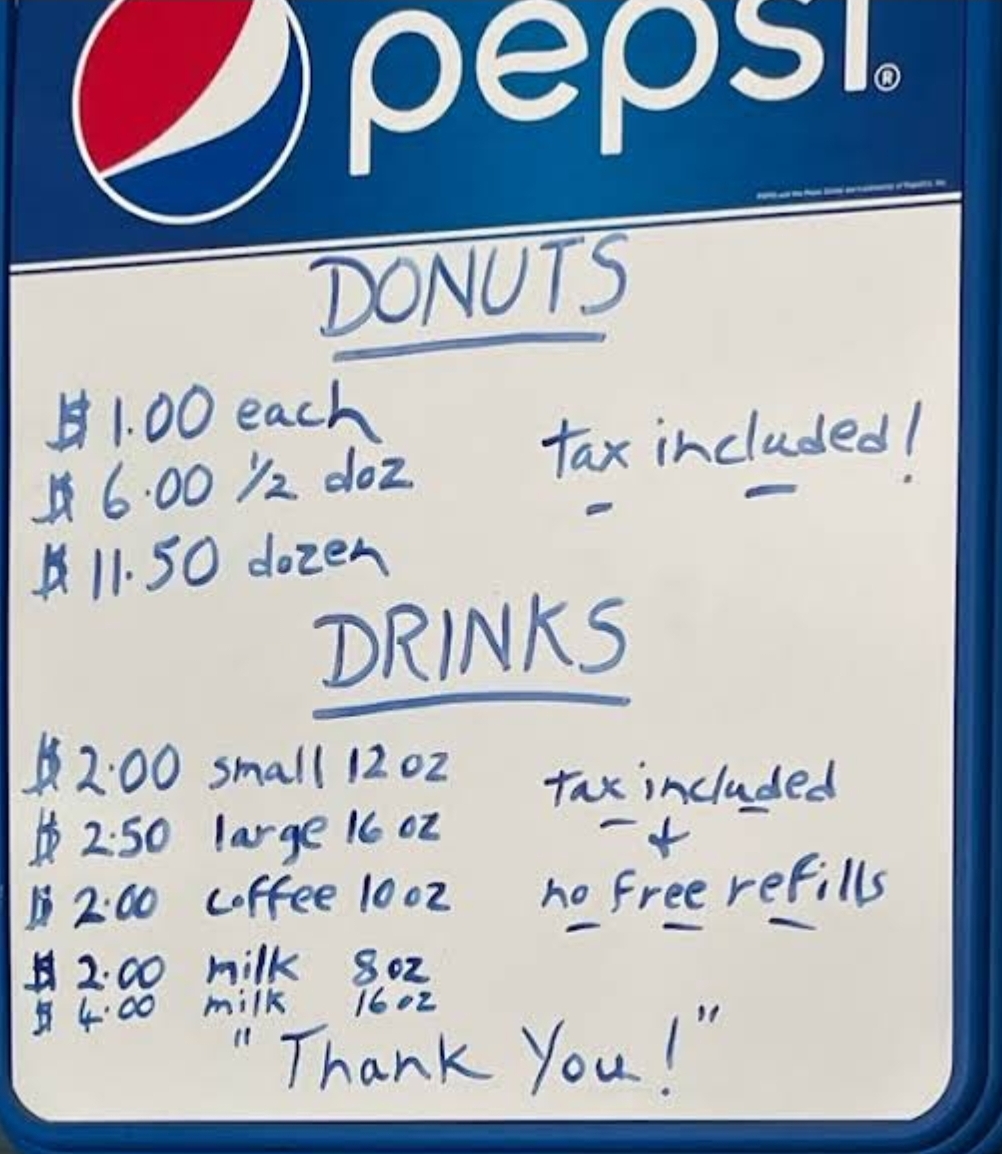 pepsi®
DONUTS
$1.00 each
tax included!
$6.00 1/2 doz
$11.50 dozen
DRINKS
$2.00 small 12 oz
tax included
$2.50 large 16 oz
+
$2.00 coffee 10 oz
no free refills
$2.00 milk 8 oz
$4.00 milk 16 oz
"Thank You!"